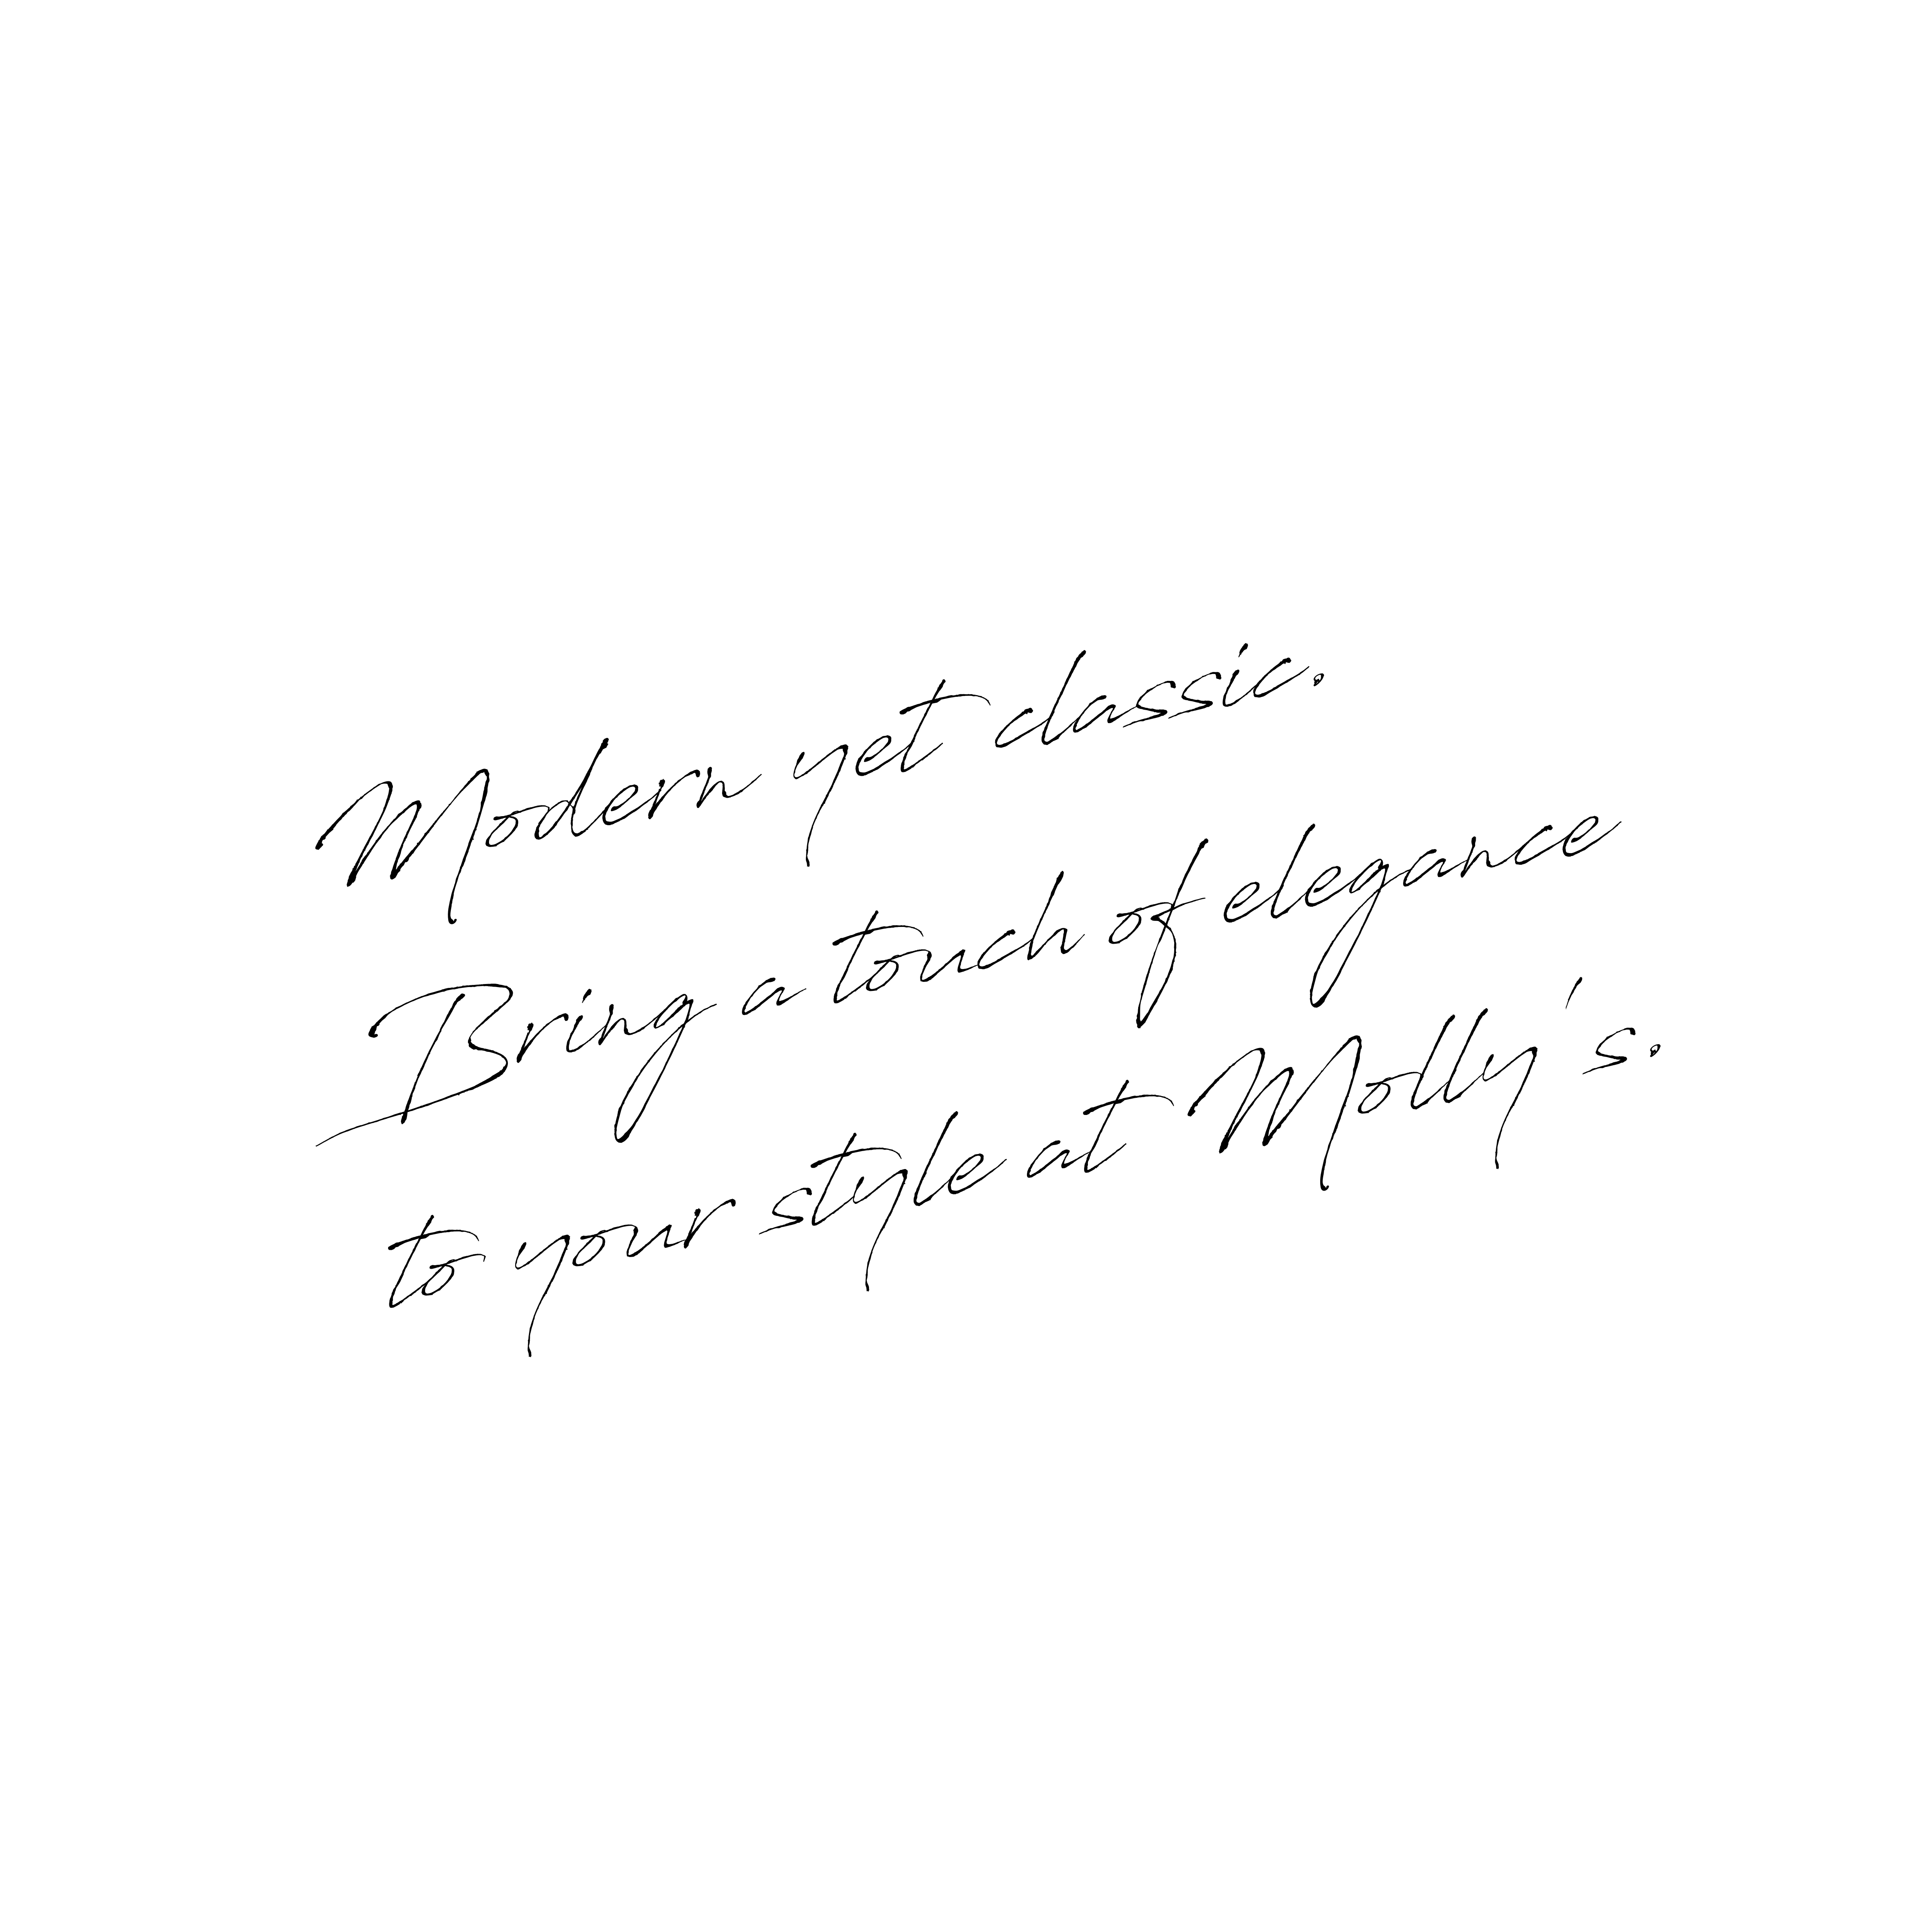 Modern yet classic.
Bring a touch of elegance
to your style at Molly's.